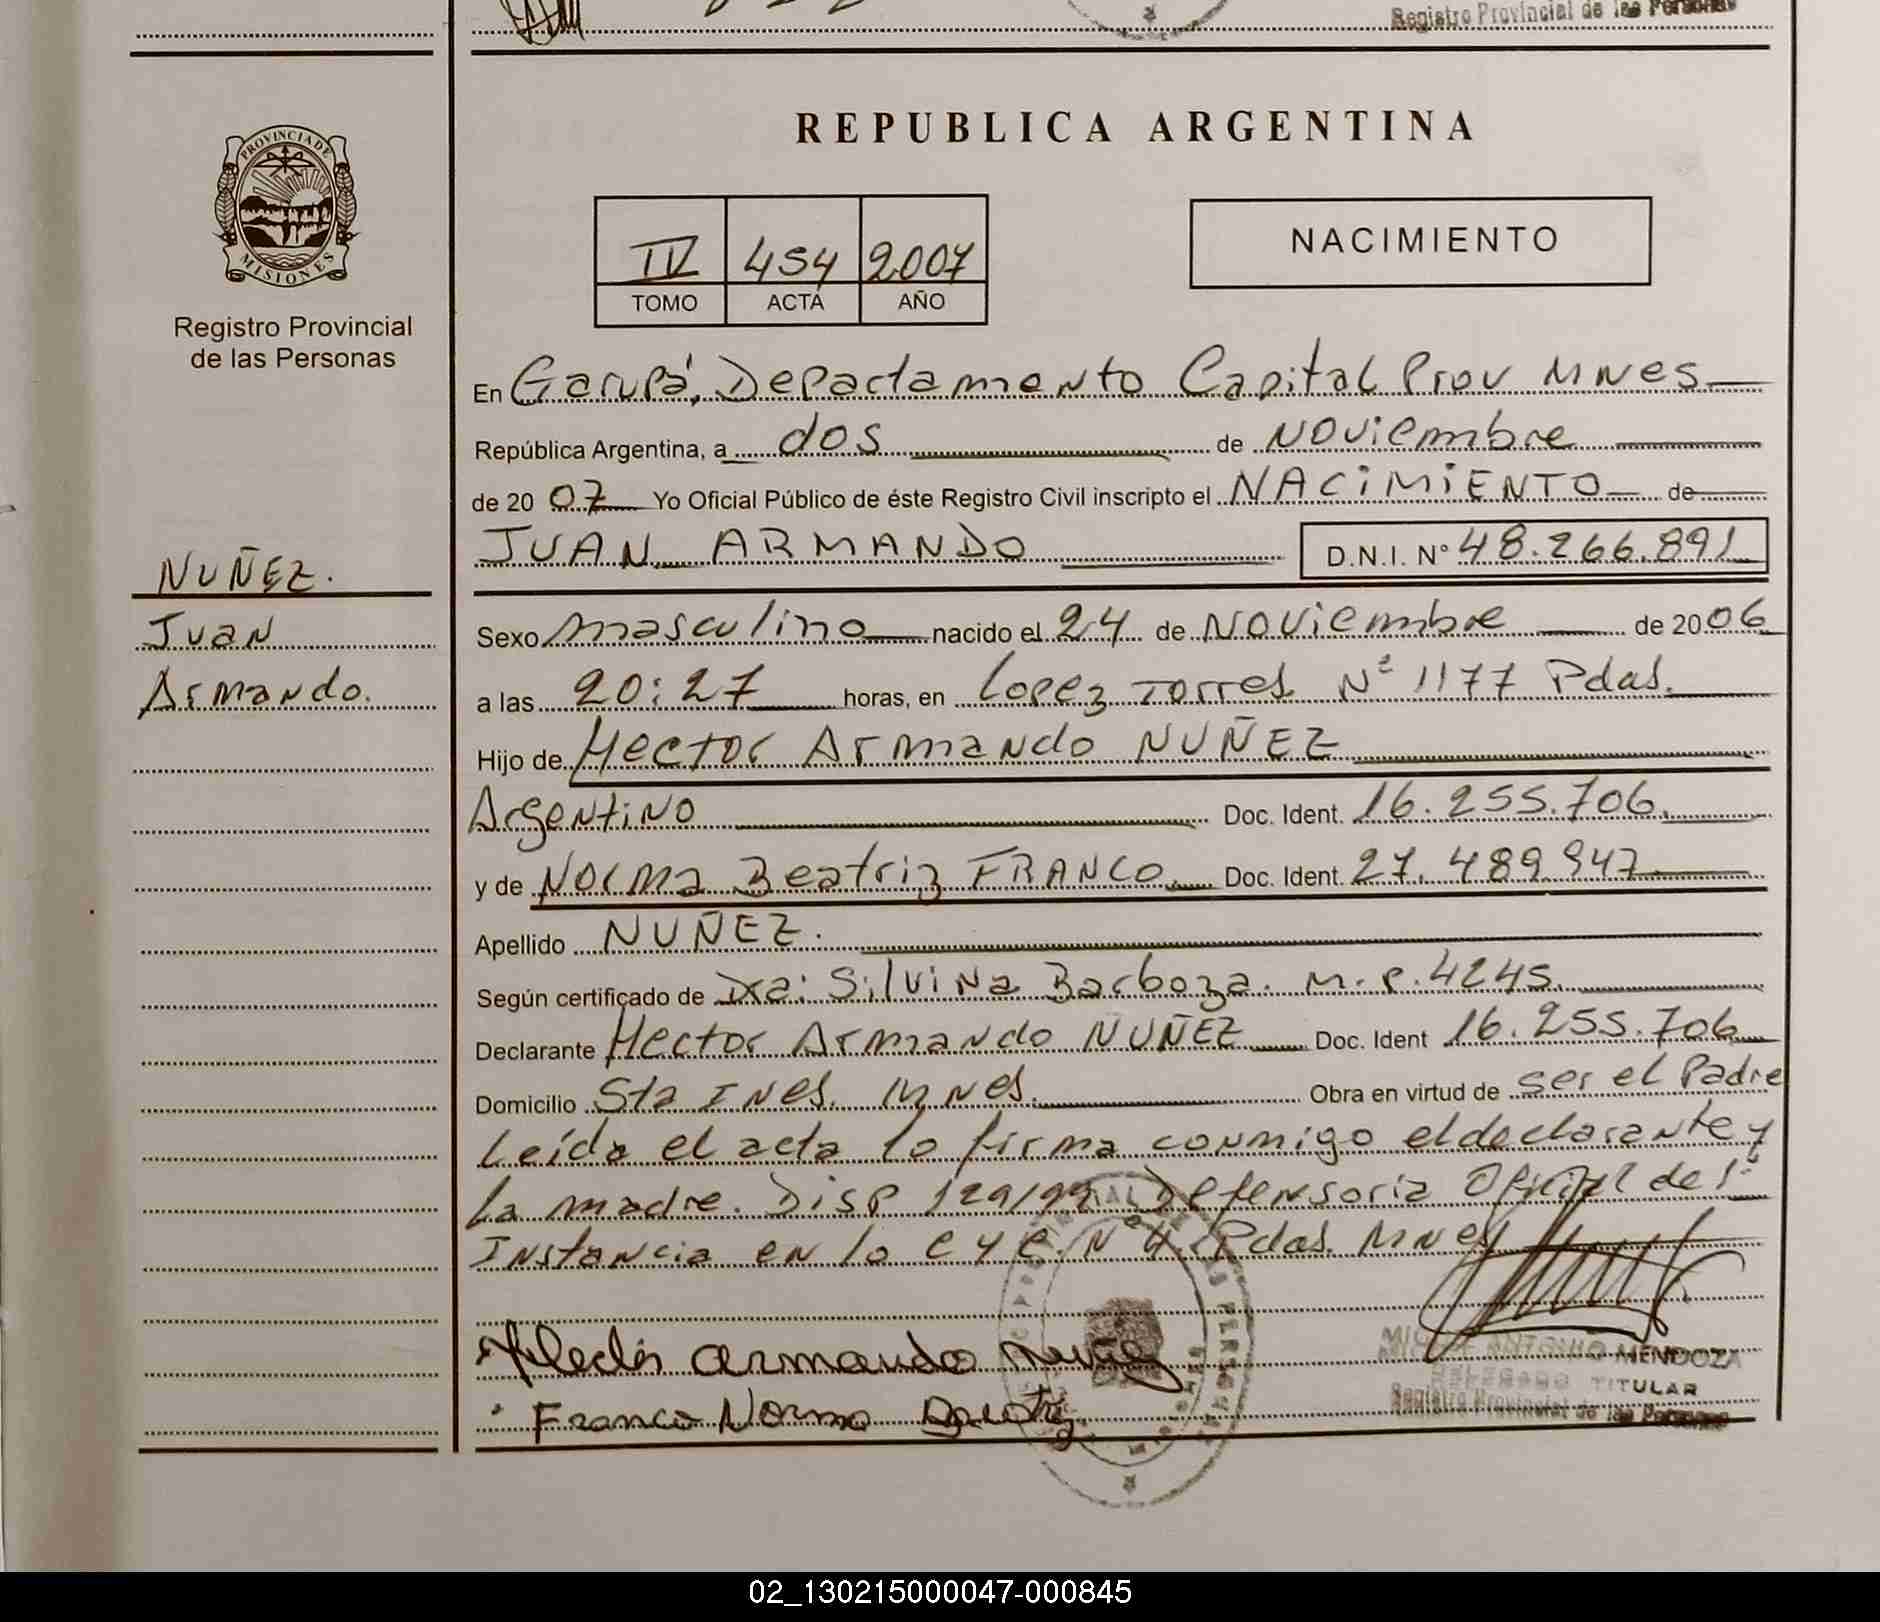 Registro Provincial de las Personas
REPUBLICA ARGENTINA
PROVINCIA DE
MISIONES
Registro Provincial
de las Personas
IV 454 2007
TOMO ACTA AÑO
NACIMIENTO
En Garupá, Departamento Capital Prov Mnes
República Argentina, a dos de Noviembre
de 2007 Yo Oficial Público de éste Registro Civil inscripto el NACIMIENTO de
JUAN ARMANDO D.N.I. Nº 48.266.891
NUÑEZ.
Juan
Armando.
Sexo masculino nacido el 24 de Noviembre de 2006
a las 20:27 horas, en Lopez Torres Nº 1177 Pdas.
Hijo de Hector Armando NUÑEZ
Argentino Doc. Ident. 16.255.706
y de Norma Beatriz FRANCO. Doc. Ident. 27.489.947
Apellido NUÑEZ.
Según certificado de Dra: Silvina Barboza. M.P. 4245.
Declarante Hector Armando NUÑEZ Doc. Ident 16.255.706
Domicilio Sta Ines. Mnes. Obra en virtud de ser el Padre
Leída el acta lo firma conmigo el declarante y
la madre. Disp 129/99 Defensoria Oficial de 1º
Instancia en lo C y C. Nº 4. Pdas. Mnes
Hector Armando Nuñez
Franco Norma Beatriz
MIGUEL ANTONIO MENDOZA
DELEGADO TITULAR
Registro Provincial de las Personas
02_130215000047-000845